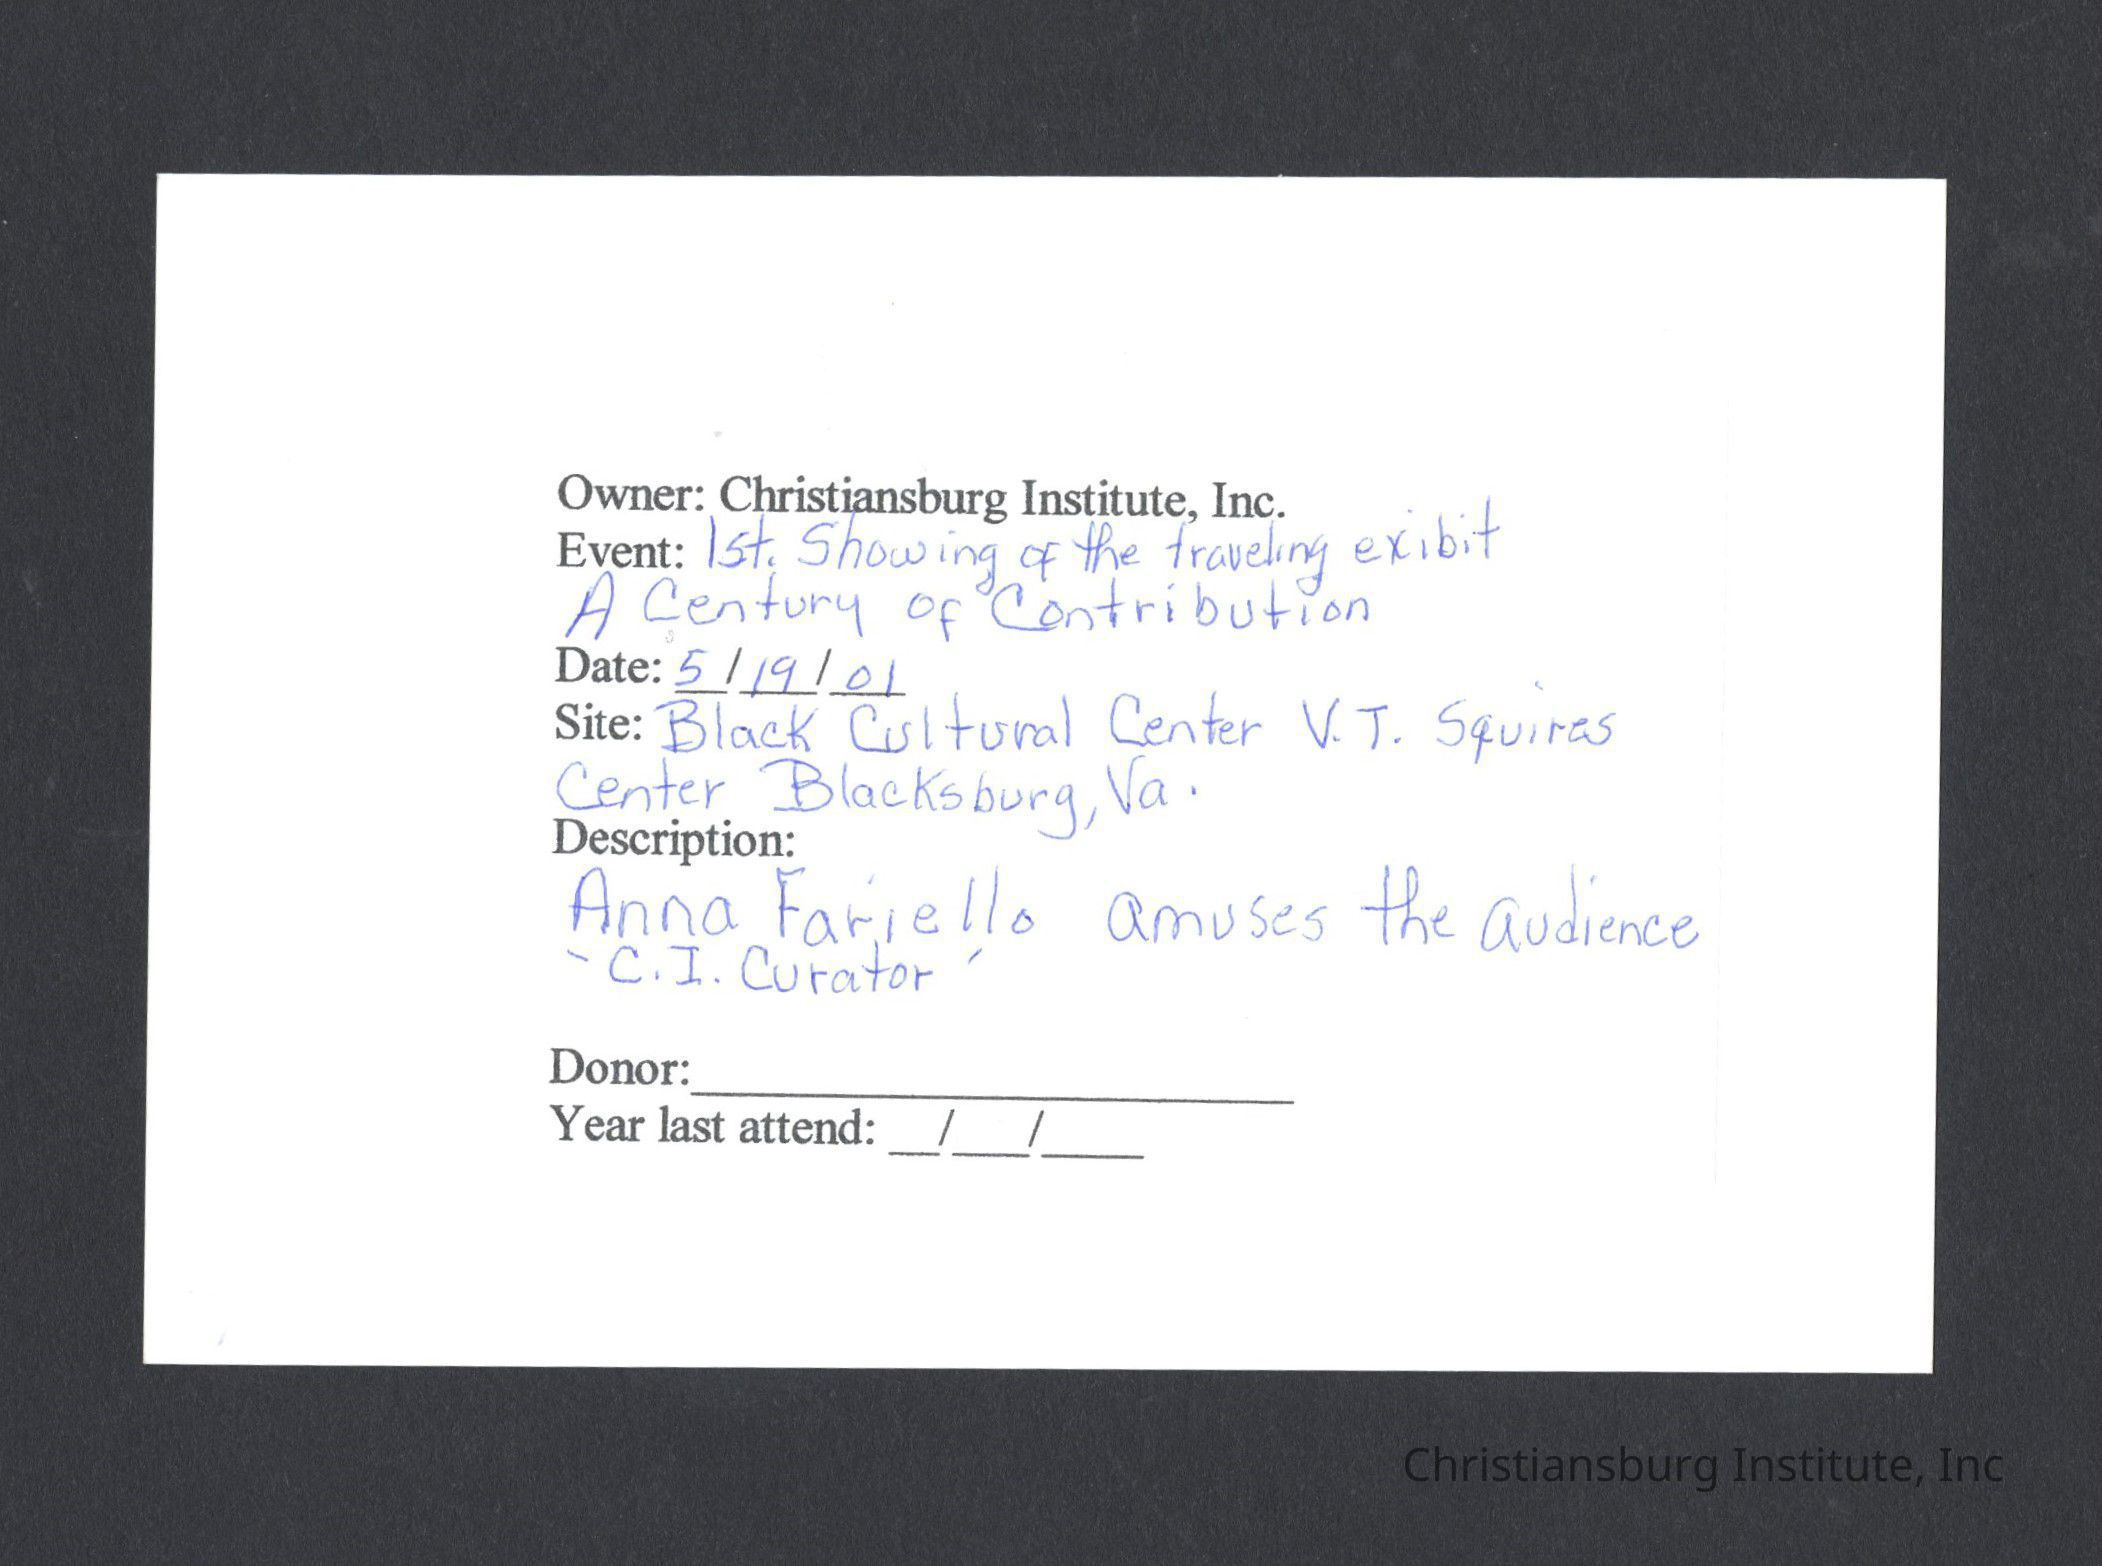 Owner: Christiansburg Institute, Inc.
Event: 1st. Showing of the traveling exibit
A Century of Contribution
Date: 5/19/01
Site: Black Cultural Center V.T. Squires
Center Blacksburg, Va.
Description:
Anna Fariello amuses the audience
"C.I. Curator"
Donor:
Year last attend: __/___/____
Christiansburg Institute, Inc